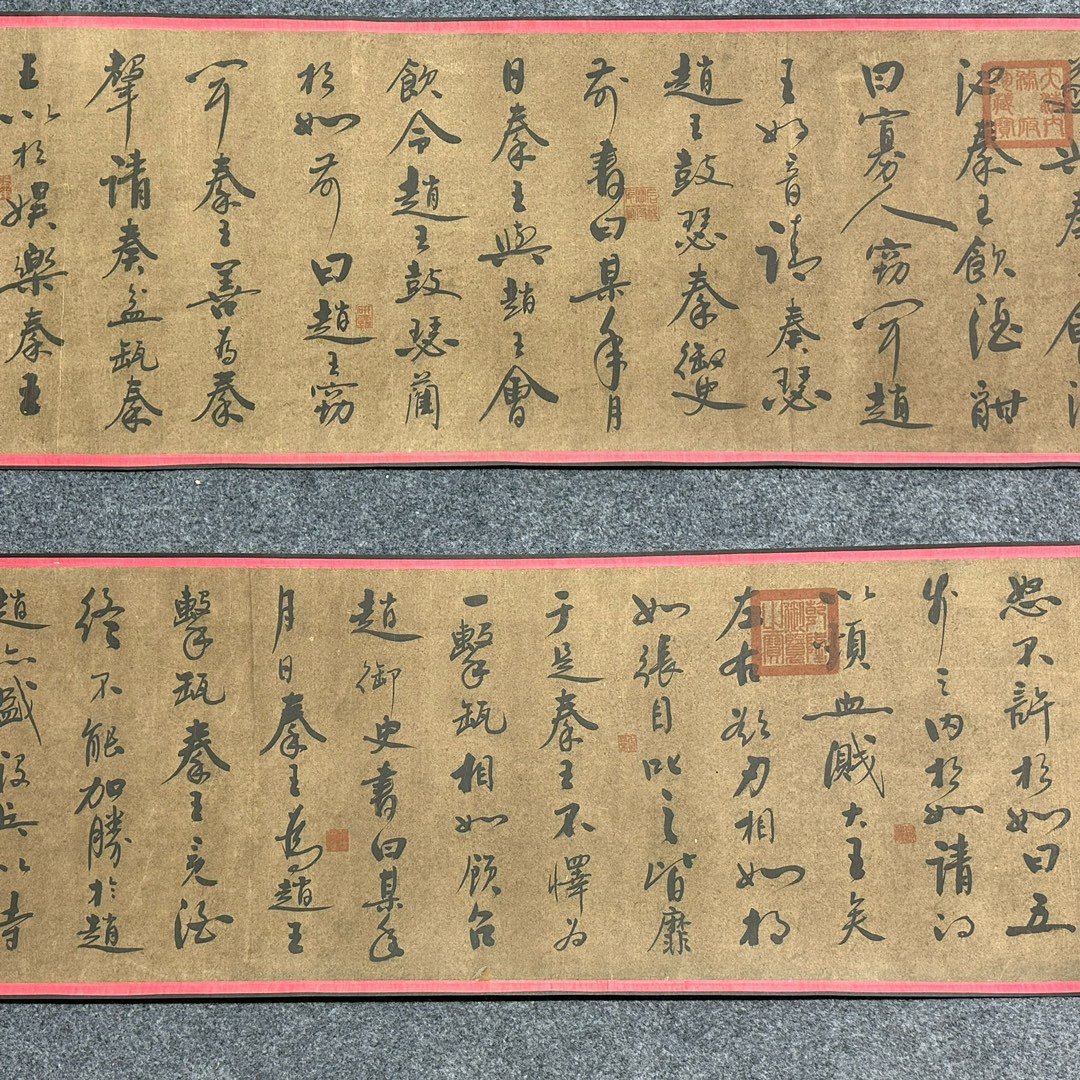 池秦王飲酒酣
曰寡人竊聞趙
王好音請奏瑟
趙王鼓瑟秦御史
前書曰某年月
日秦王與趙王會
飲令趙王鼓瑟藺
相如前曰趙王竊
聞秦王善為秦
聲請奏盆缻秦
王以相娛樂秦王
怒不許相如曰五
步之內相如請得
以頸血濺大王矣
左右欲刃相如相
如張目叱之皆靡
于是秦王不懌為
一擊缻相如顧召
趙御史書曰某年
月日秦王為趙王
擊缻秦王竟酒
終不能加勝於趙
趙亦盛設兵以待